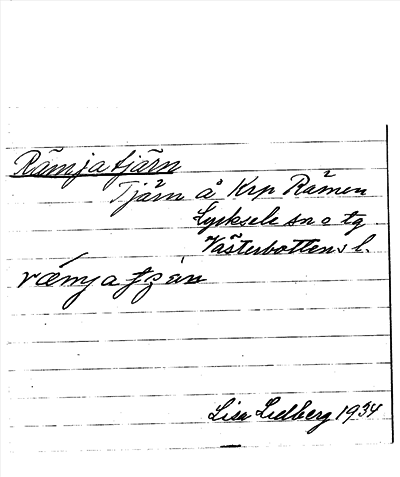 Rämjatjärn
Tjärn å Krp Råmen
Lycksele sn o tg
Västerbottens l.
ræmjatɟæn
Lisa Lidberg 1934